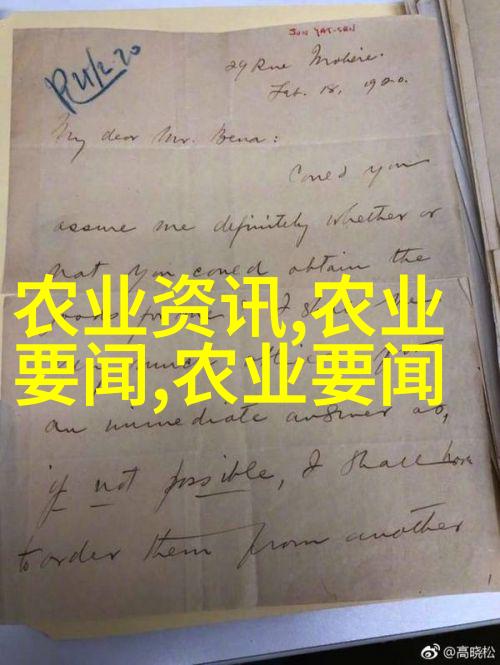 SUN YAT-SEN
R 21/2.20
29 Rue Molière.
Feb. 18, 1920.
My dear Mr. Bena:
Could you
assure me definitely whether or
not you could obtain the
农业资讯,农业
要闻,农业要闻
an immediate answer as,
if not possible, I shall have
to order them from another
@高晓松